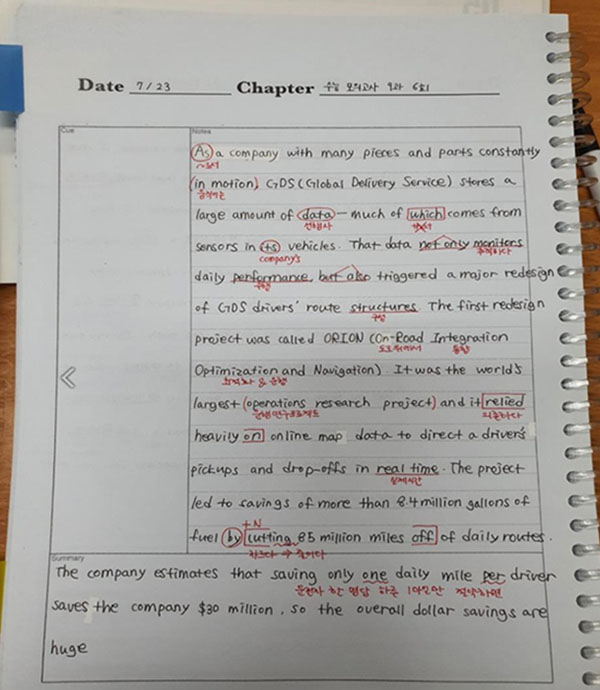 Date 7/23 Chapter 수능 모의고사 9과 6회
Cue
Notes
As a company with many pieces and parts constantly
~로서
(in motion), GDS (Global Delivery Service) stores a
움직이는
large amount of data — much of which comes from
선행사
sensors in its vehicles. That data not only monitors
company's 추적하다
daily performance, but also triggered a major redesign
of GDS drivers' route structures. The first redesign
구성
project was called ORION (On-Road Integration
통합
Optimization and Navigation). It was the world's
최적화 & 운행
largest (operations research project) and it relied
운영연구프로젝트 의존하다
heavily on online map data to direct a driver's
pickups and drop-offs in real time. The project
실제시간
led to savings of more than 8.4 million gallons of
+N
fuel by cutting 85 million miles off of daily routes.
Summary
The company estimates that saving only one daily mile per driver
운전자 한 명당 하루 1마일만 절약하면
saves the company $30 million, so the overall dollar savings are
huge